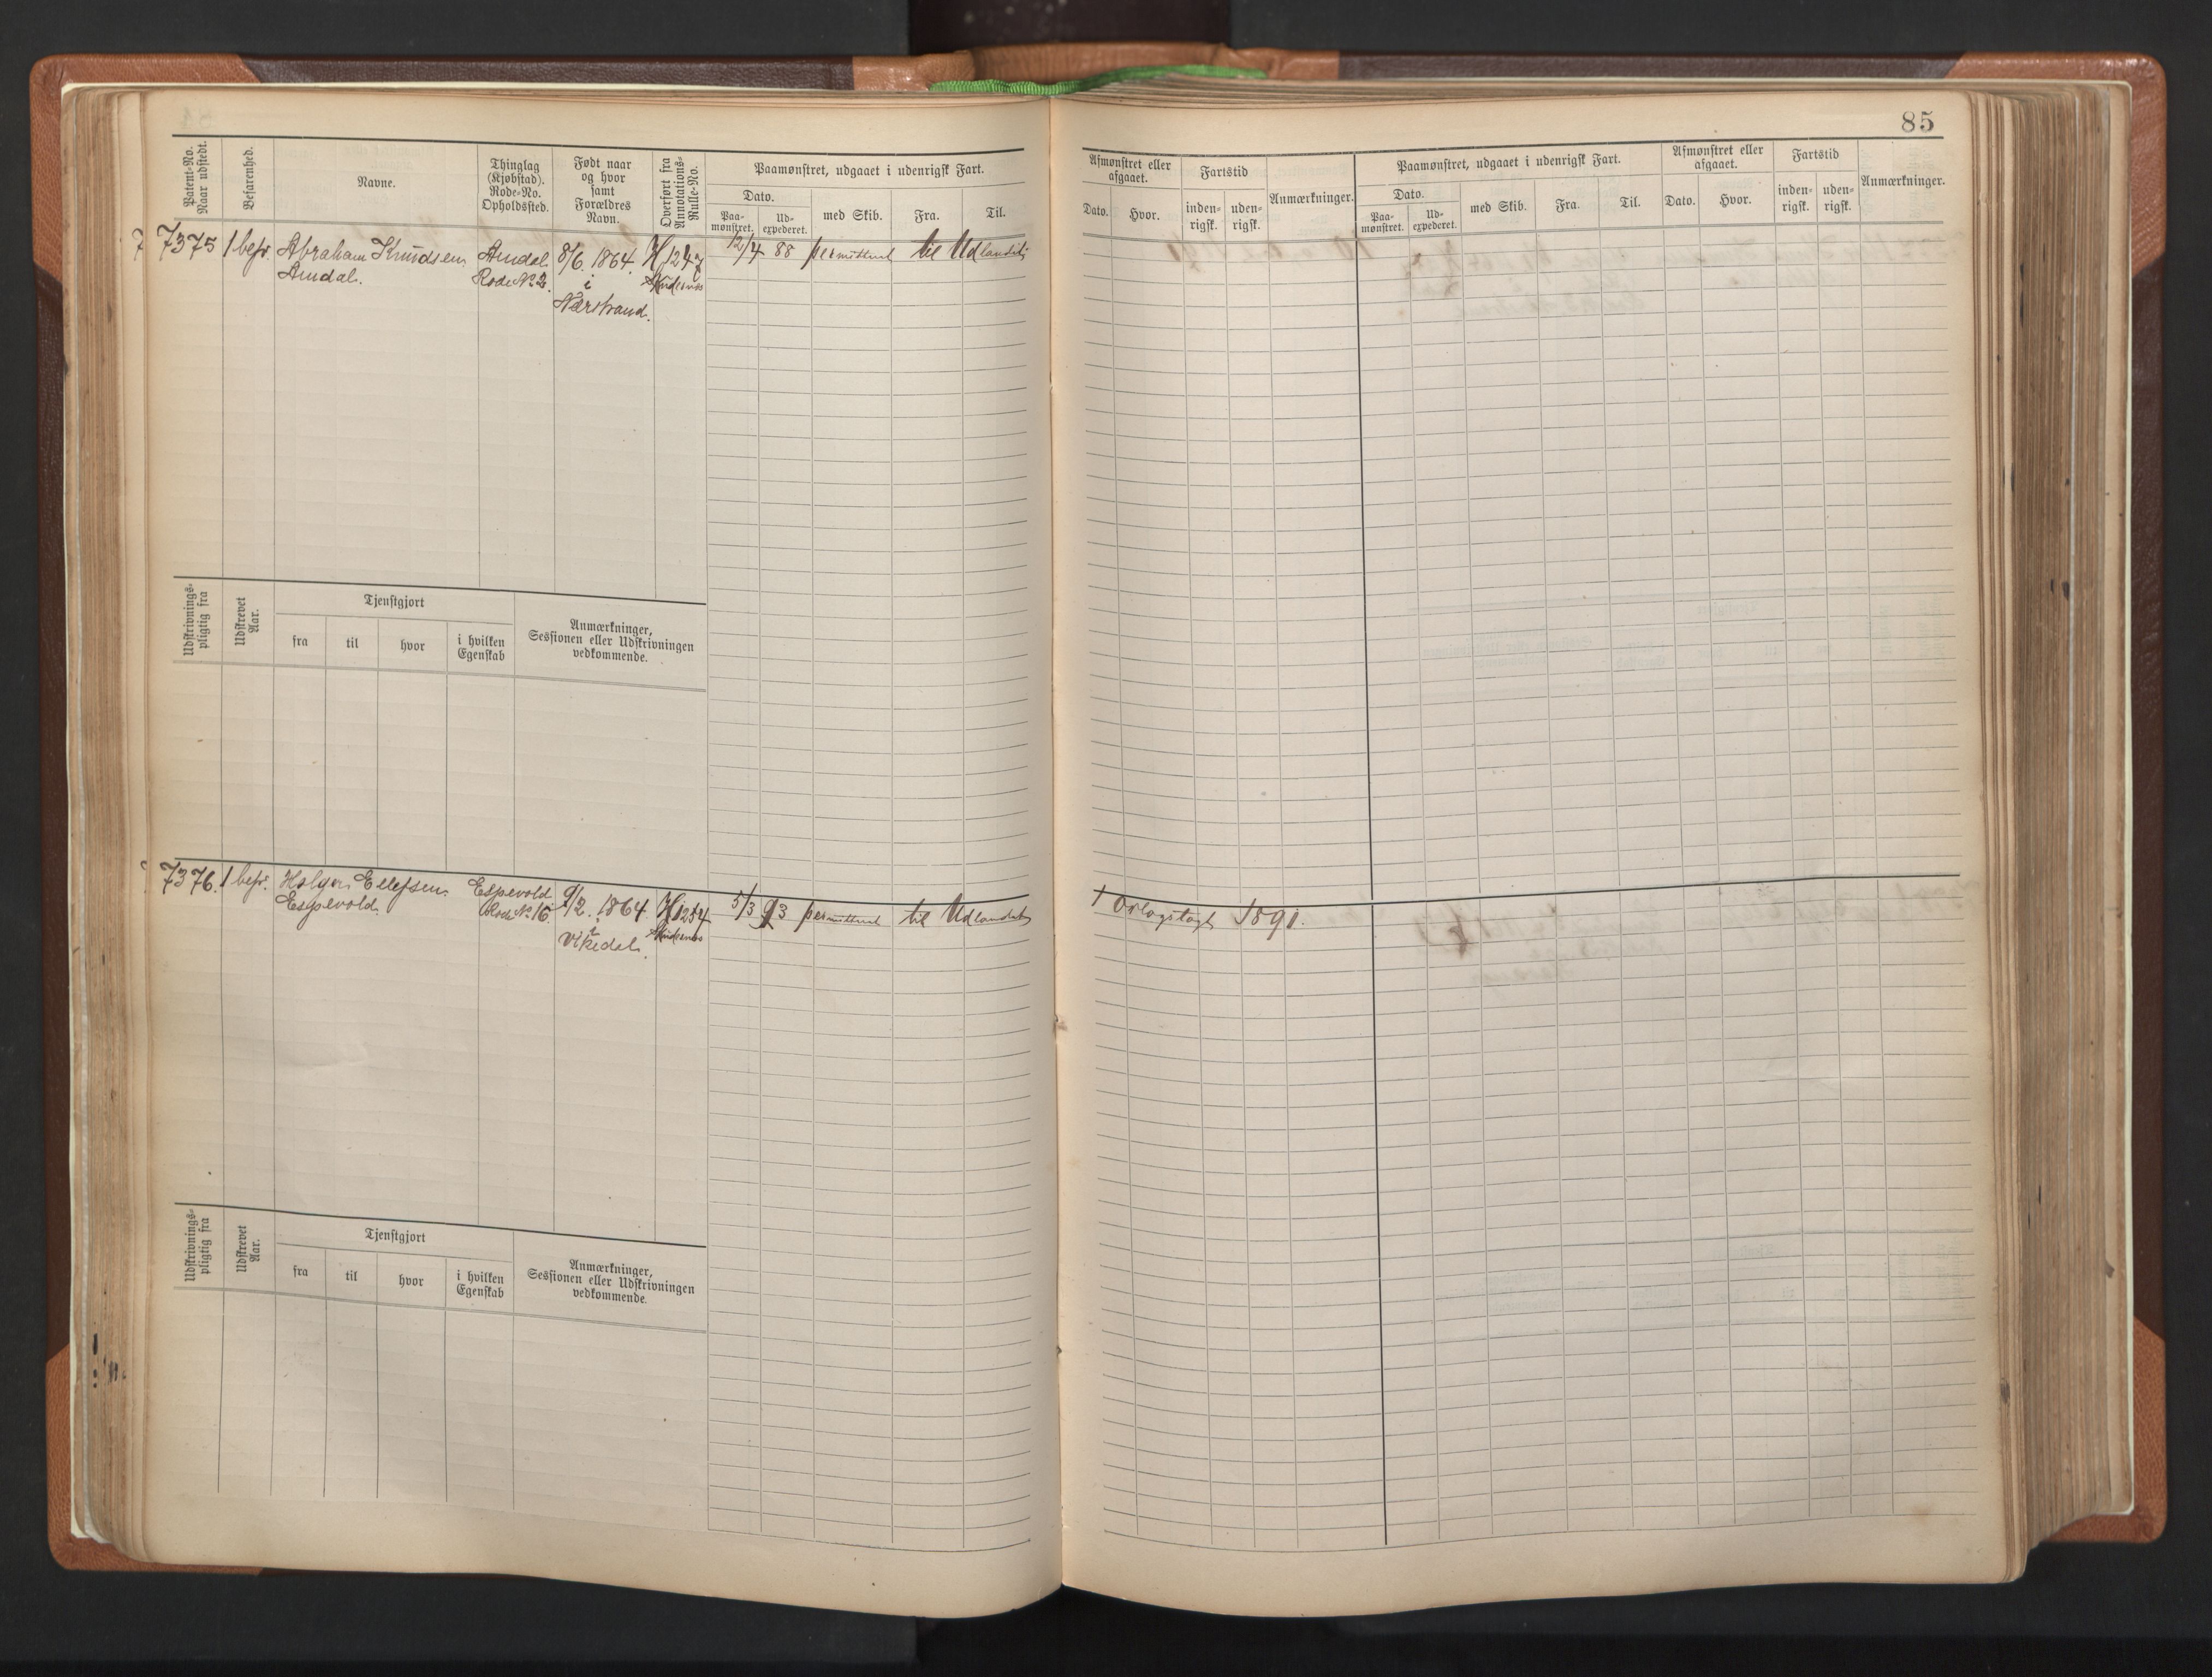 85
Patent-No.
Naar udstedt.
Befarenhed.
Navne.
Thinglag
(Kjøbstad).
Rode-No.
Opholdssted.
Født naar
og hvor
samt
Forældres
Navn.
Overført fra
Annotations-
Rulle-No.
Paamønstret, udgaaet i udenrigsk Fart.
Dato.
Paa-
mønstret.
Ud-
expederet.
med Skib.
Fra.
Til.
Afmønstret eller
afgaaet.
Dato.
Hvor.
Fartstid
inden-
rigsk.
uden-
rigsk.
Anmærkninger.
Paamønstret, udgaaet i udenrigsk Fart.
Dato.
Paa-
mønstret.
Ud-
expederet.
med Skib.
Fra.
Til.
Afmønstret eller
afgaaet.
Dato.
Hvor.
Fartstid
inden-
rigsk.
uden-
rigsk.
Anmærkninger.
7375 1 befr. Abraham Knudsen
Amdal.
Amdal
Rode No 2.
8/6. 1864.
i
Nærstrand.
Skudesnæs
12/4 88 permitteret til Udlandet
Udskrivnings-
pligtig fra
Udskrevet
Aar.
Tjenstgjort
fra
til
hvor
i hvilken
Egenskab
Anmærkninger,
Sessionen eller Udskrivningen
vedkommende.
7376. 1 befr. Holger Ellefsen
Espevold.
Espevold
Rode No 16
9/2. 1864.
i
Vikedal.
H 1254
Skudesnæs
5/3 93 permitteret til Udlandet
1 Orlogstogt 1891.
Udskrivnings-
pligtig fra
Udskrevet
Aar.
Tjenstgjort
fra
til
hvor
i hvilken
Egenskab
Anmærkninger,
Sessionen eller Udskrivningen
vedkommende.